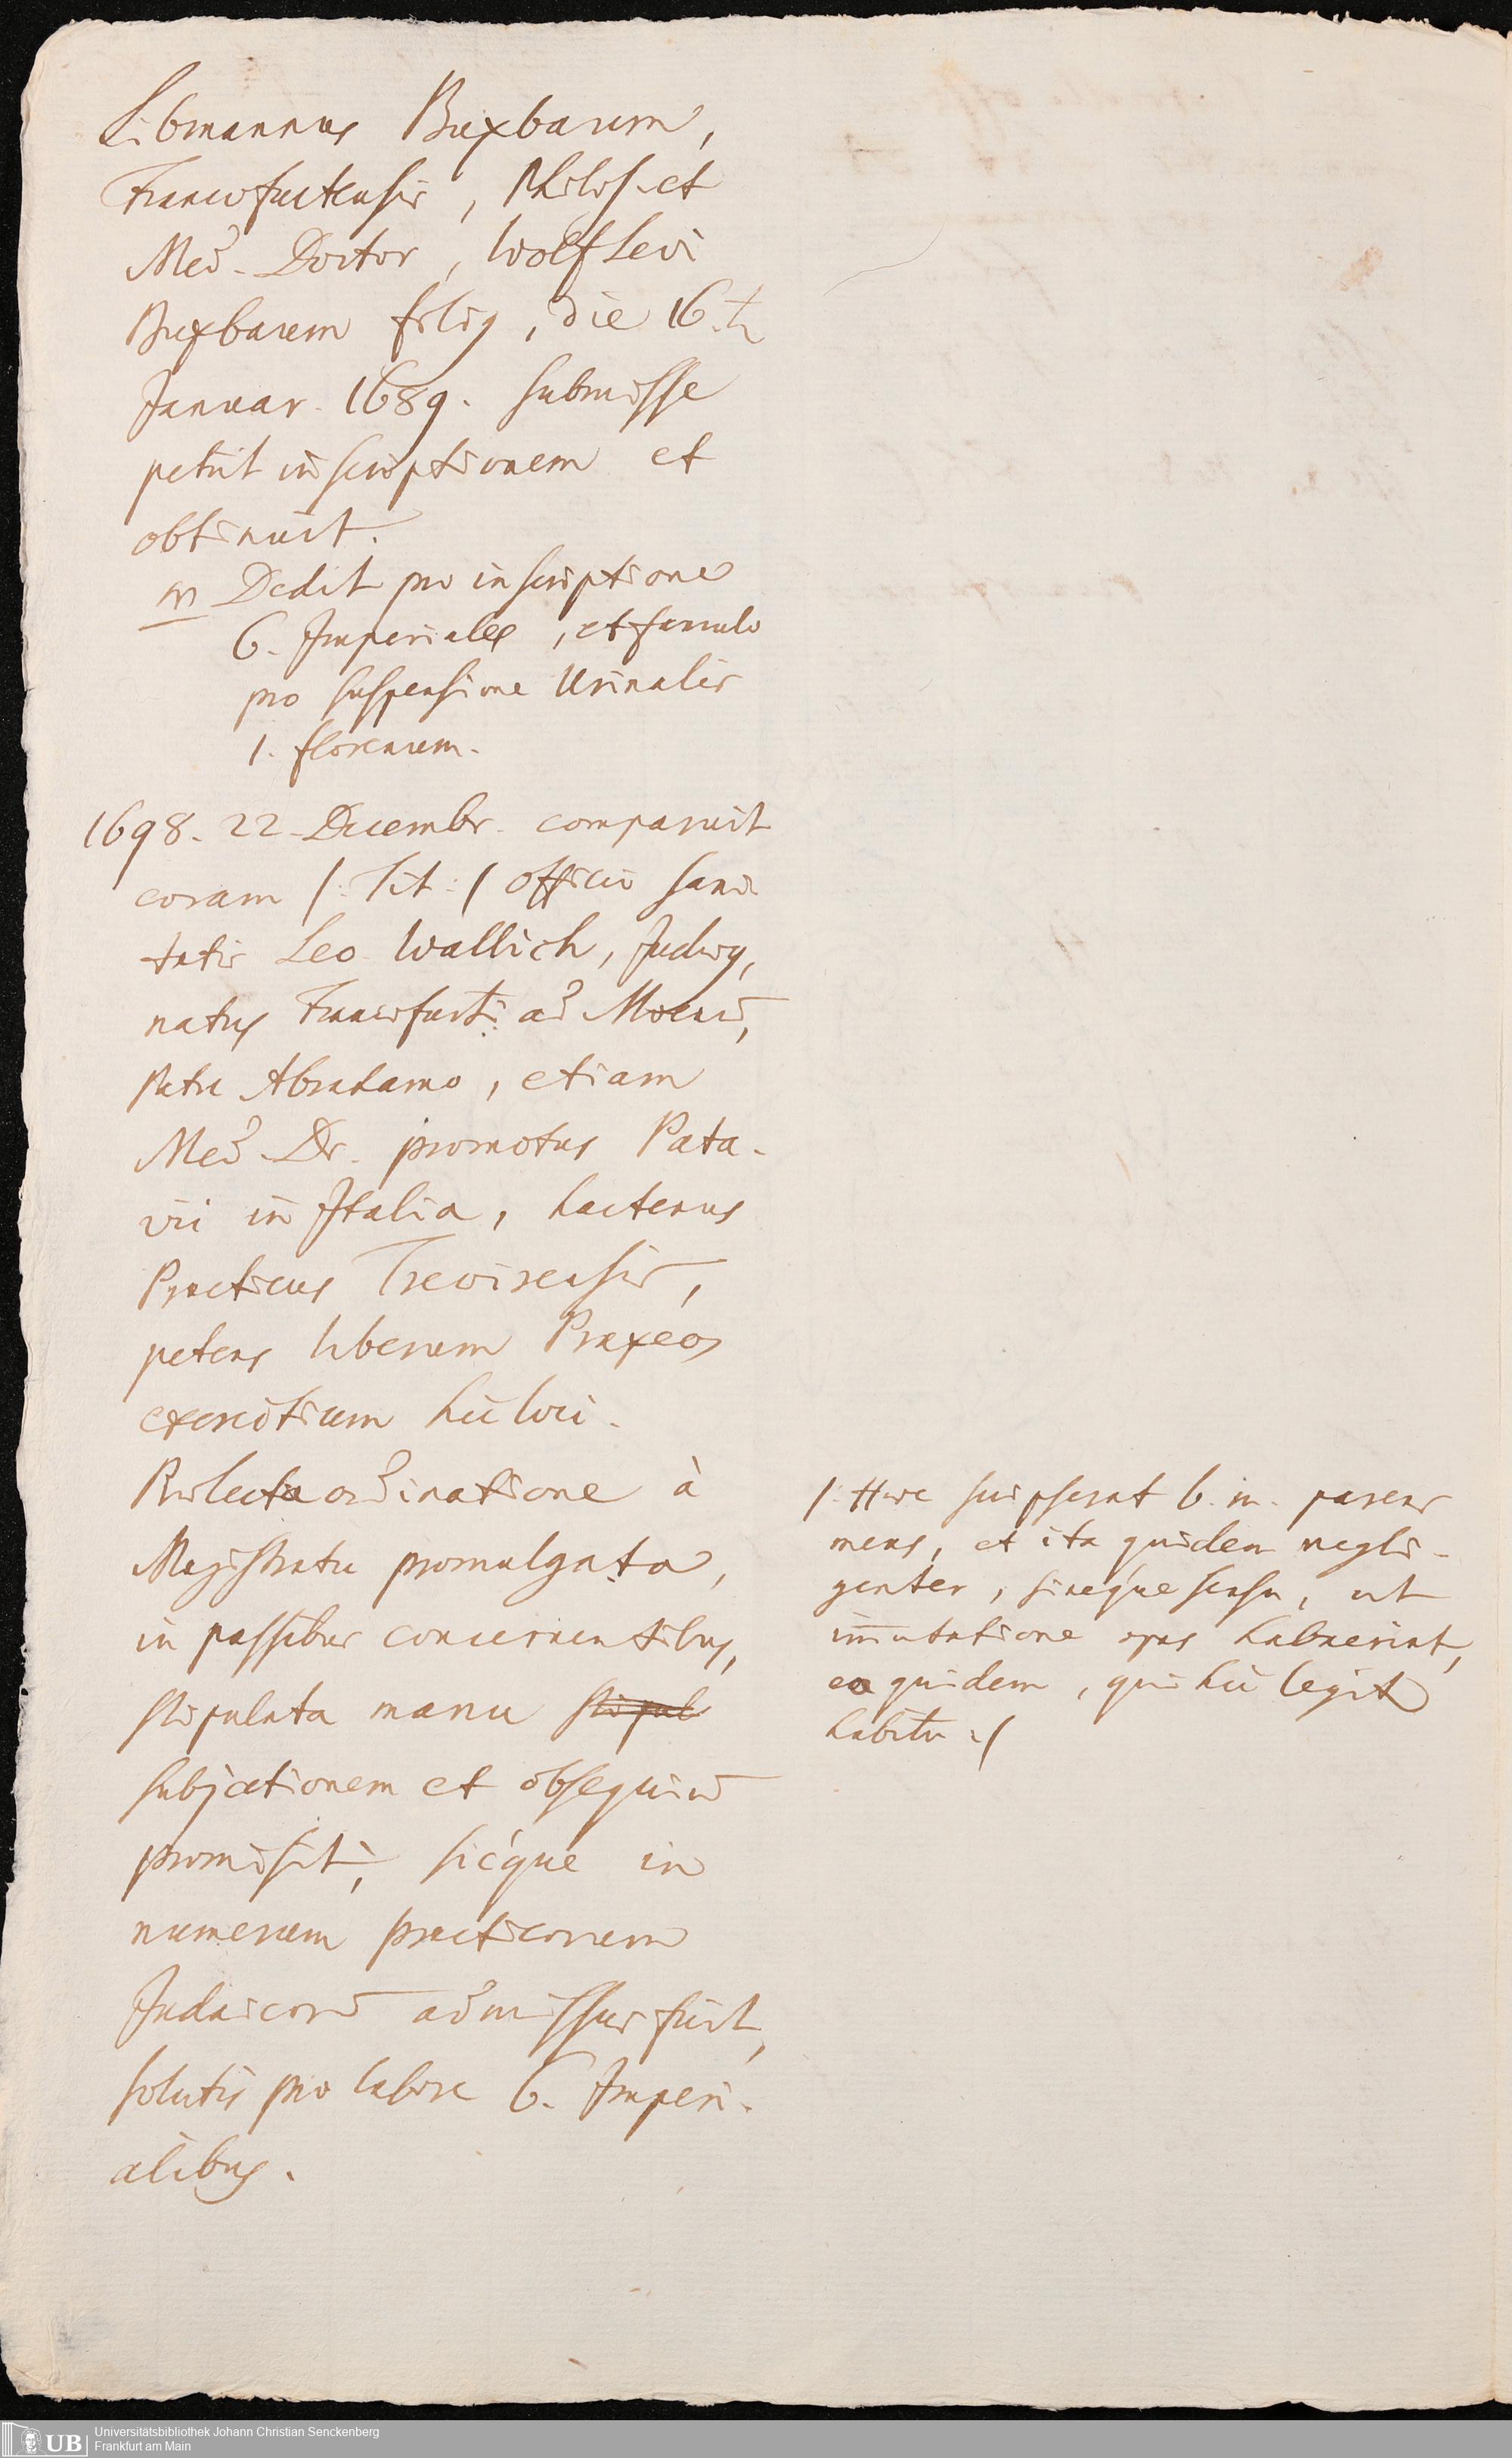 Libmannus Buxbaum,
Francofurtensis, Philos. et
Med. Doctor, Wolf Levi
Buxbaum filig, die 16.
Januar. 1689. submisse
petiit inscriptionem et
obtinuit.
Dedit pro inscriptione
6. Imperiales, et famulo
pro suspensione Urinalis
1. florenum.
1698. 22. Decembr. comparuit
coram /: Tit :/ officio sani-
tatis Leo Wallich, Judeus,
natus Francofurti ad Moenũ,
Patre Abrahamo, etiam
Med. Dr. promotus Pata-
vii in Italia, hactenus
Practicus Trevirensis,
petens liberum Praxeos
exercitium hic loci.
Prolecta ordinatione à
Magistratu promulgata,
in passibus concernentibus,
stipulata manu stipul
subjectionem et obsequiũ
promisit, sicque in
numerum practicorum
Judaicorũ admissus fuit,
solutis pro labore 6. Imperi-
alibus.
/: Haec scripserat b. m. parens
meus, et ita quidem negli-
genter, sineque sensu, ut
im̃utatione opus habuerint,
ea quidem, qui hic legit
habitu :/
Universitätsbibliothek Johann Christian Senckenberg
Frankfurt am Main
UB